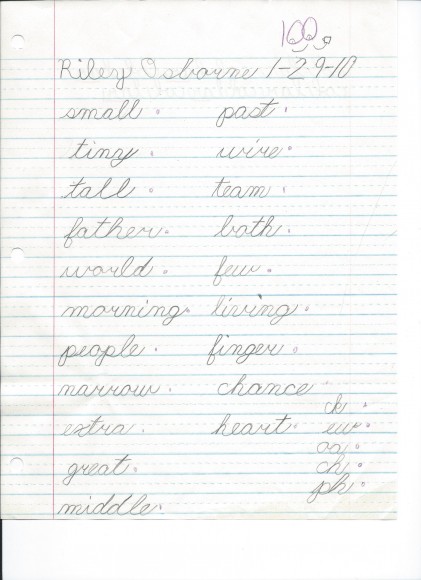 100
Riley Osborne 1-29-10
small. past.
tiny. wire.
tall. team.
father. both.
world. few.
morning. living.
people. finger.
narrow. chance
ck.
extra. heart. ew.
oa.
great. ch.
ph.
middle.